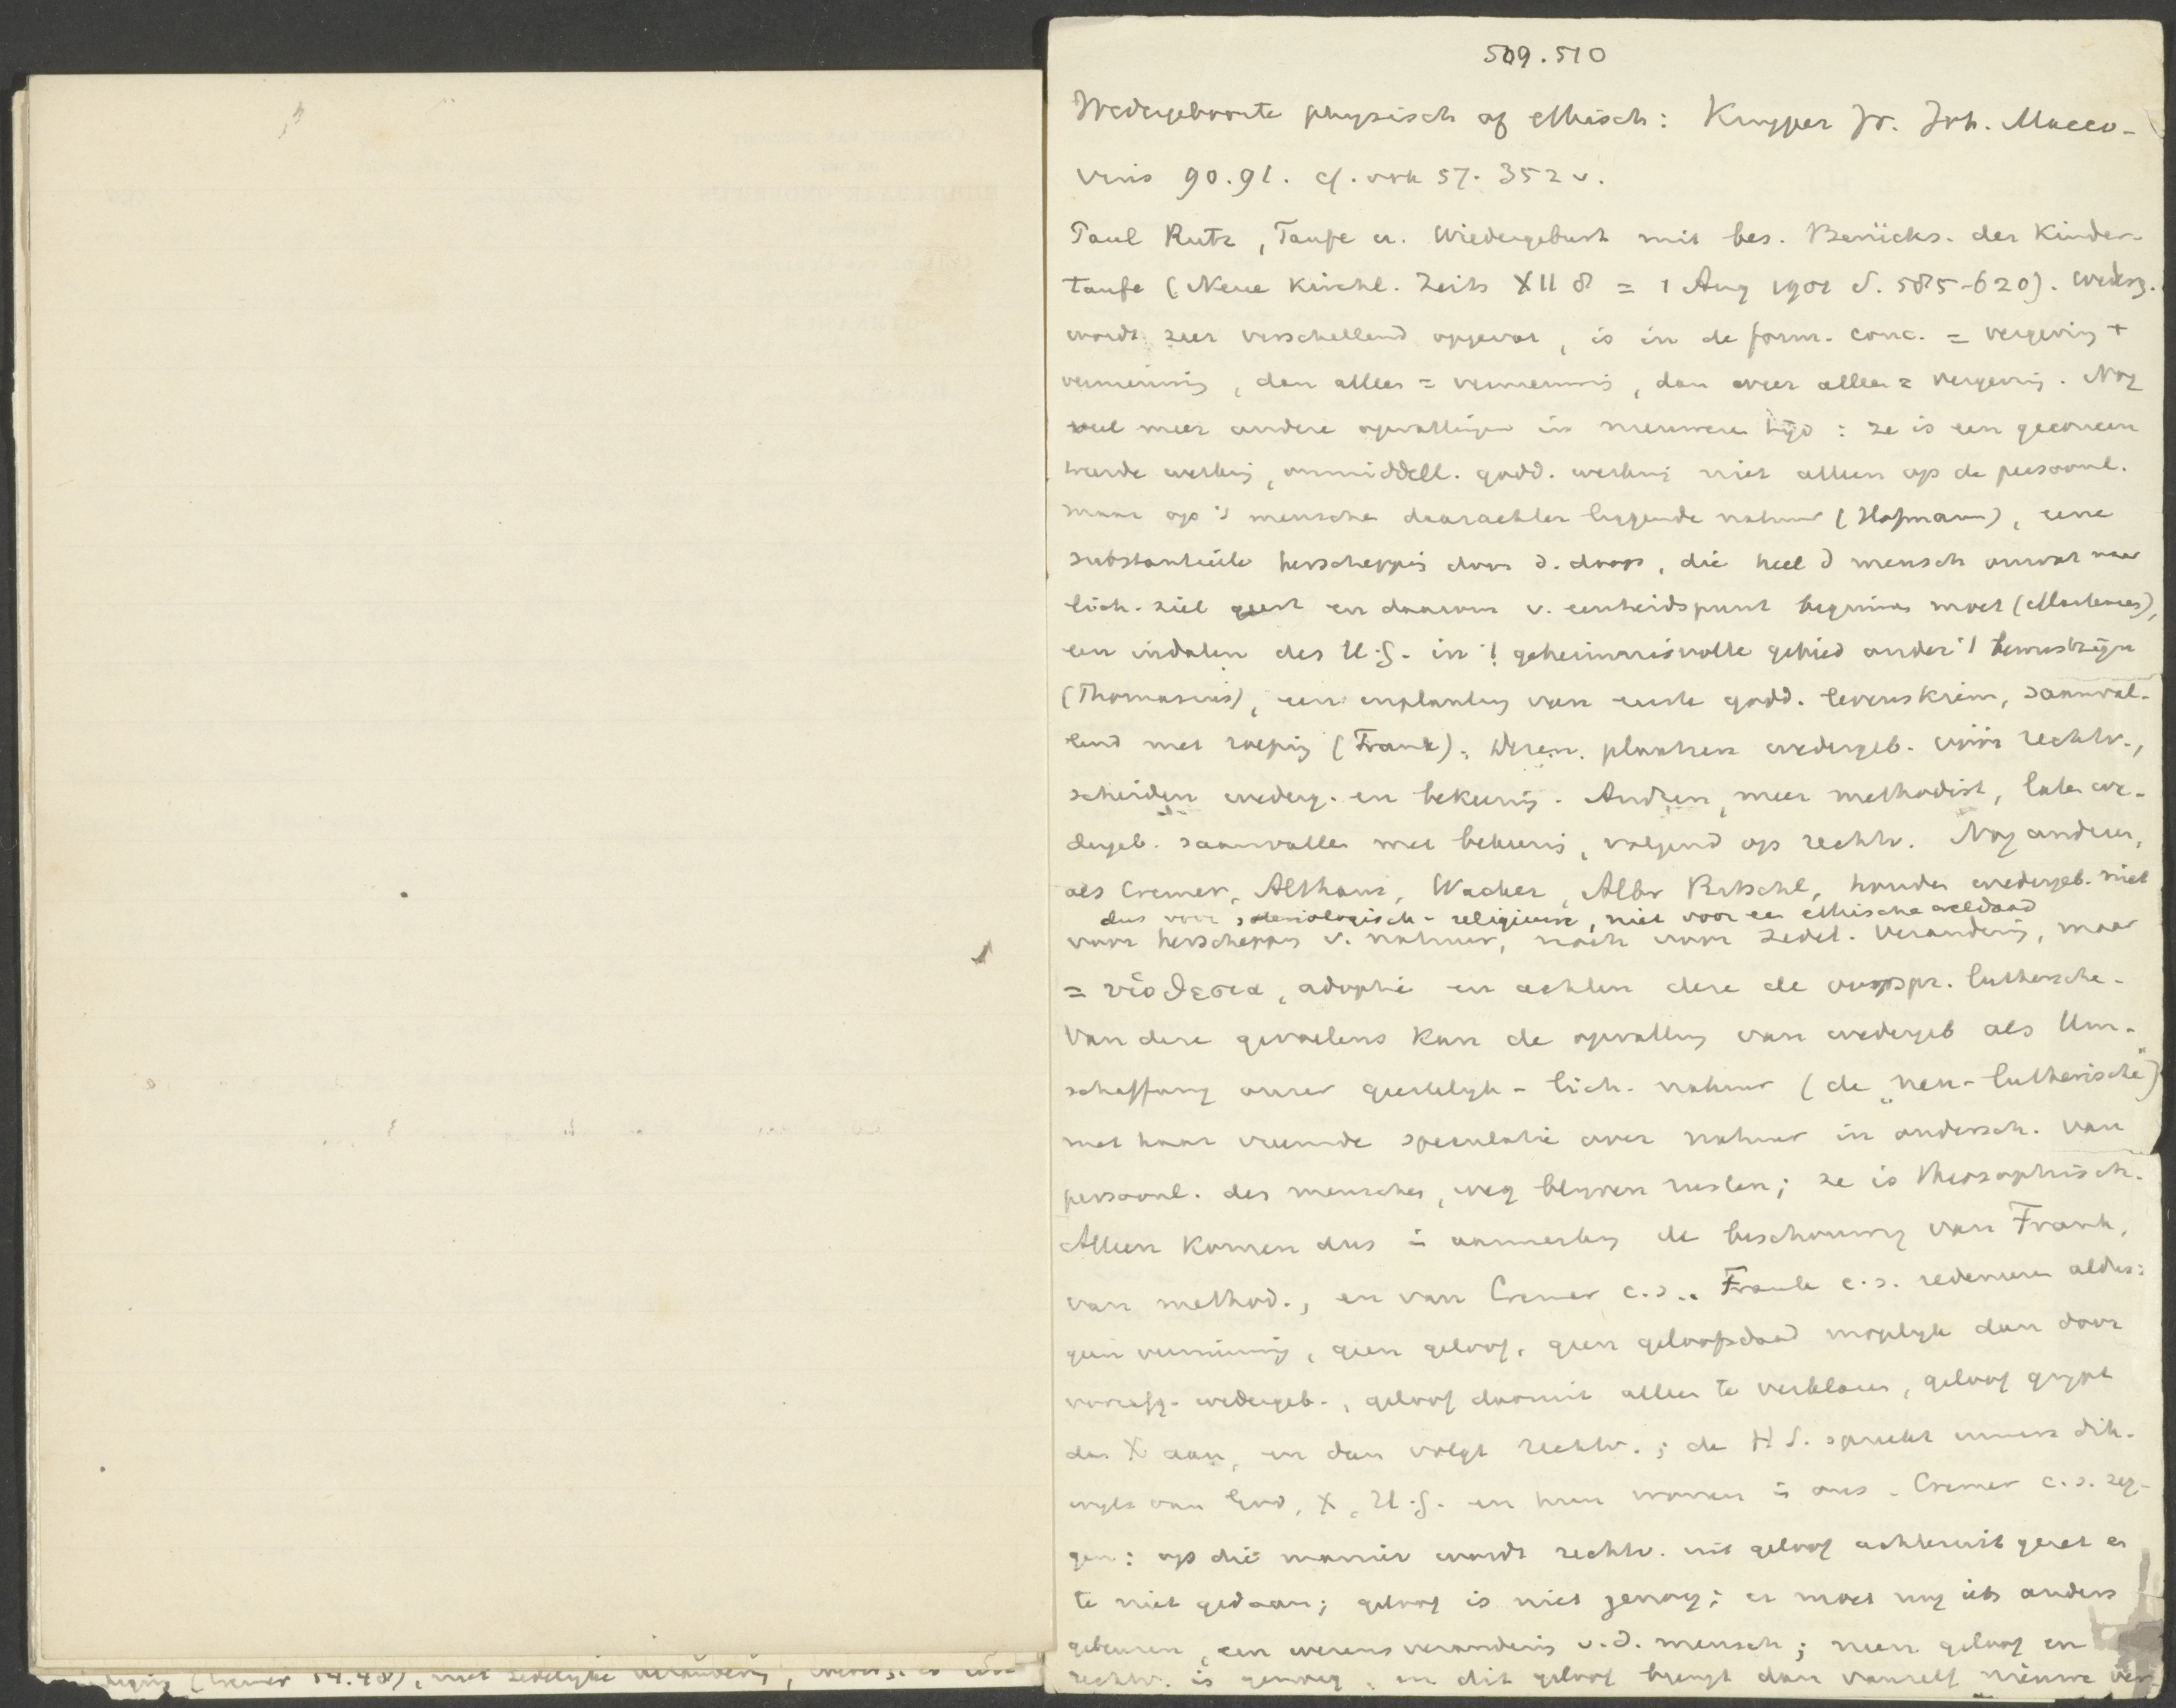 509.510
Wedergeboorte physisch of ethisch: Kuyper Jr. Joh. Macco-
vius 90.91. cf. ook 57. 352 v.
Paul Rutz, Taufe u. Wiedergeburt mit bes. Berücks. der Kinder-
taufe (Neue Kirchl. Zeits XII 8 = 1 Aug 1901 S. 585-620). wederg.
wordt zeer verschillend opgevat, is in de form. conc. = vergeving +
vernieuwing, dan alleen = vernieuwing, dan weer alleen = vergeving. Nog
veel meer andere opvattingen in nieuweren tijd: ze is een
werking, onmiddell. godd. werking niet alleen op de persoonl.
maar op 's menschen daarachter liggende natuur (Hofmann), eene
substantieele herschepping door d. doop, die heel d mensch omvat naar
lich. ziel geest en daarom v. eenheidspunt beginnen moet (Martensen),
een indalen des H.G. in 't geheimnisvolle gebied onder 't bewustzijn
(Thomasius), een inplanting van eerste godd. levenskiem, saamval-
lend met roeping (Frank). Dezen plaatsen wedergeb. vóór rechtv.,
scheiden wederg. en bekeering. Andren, meer methodist, laten we-
dergeb. saamvallen met bekeering, volgend op rechtv. Nog anderen,
als Cremer, Althaus, Wacker, Albr Ritschl, houden wedergeb. niet
dus voor soteriologisch-religieuse, niet voor een ethische weldaad
voor herschepping v. natuur, noch voor zedel. verandering, maar
= υἱοθεσια, adoptie en achten deze de oorspr. luthersche.
Van deze gevoelens kan de opvatting van wedergeb als Um-
schaffung onzer geestelijk-lich. natuur (de "neu-lutherische")
met haar vreemde speculatie over natuur in ondersch. van
persoonl. des menschen, weg blijven rusten; ze is theosophisch.
Alleen komen dus in aanmerking de beschouwing van Frank,
van method., en van Cremer c.s.. Frank c.s. redeneeren aldus:
geen vernieuwing, geen geloof, geen geloofsdaad mogelijk dan door
voorafg. wedergeb., geloof daaruit alleen te verklaren, geloof grijpt
dan X aan, en dan volgt rechtv.; de H S. spreekt immers dik-
wijls van God, X, H.G. en hun wonen in ons. Cremer c.s. zeg-
gen: op die manier wordt rechtv. uit geloof achteruit gezet en
te niet gedaan; geloof is niet genoeg; er moet nog iets anders
gebeuren, een wezensverandering v.d. mensch; neen geloof en
rechtv. is genoeg, en dit geloof brengt dan vanzelf nieuwe ver-
(Cremer 54.48), met zedelijke verandering,